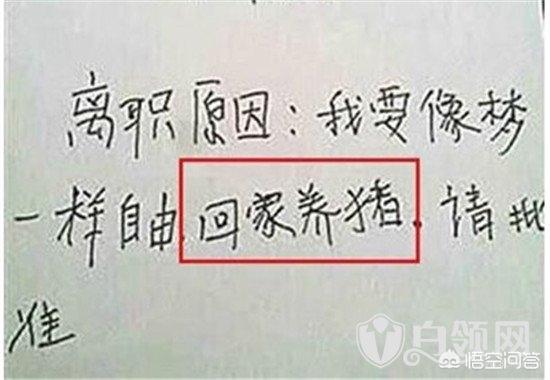 离职原因：我要像梦
一样自由，回家养猪，请批
准
白领网
悟空问答